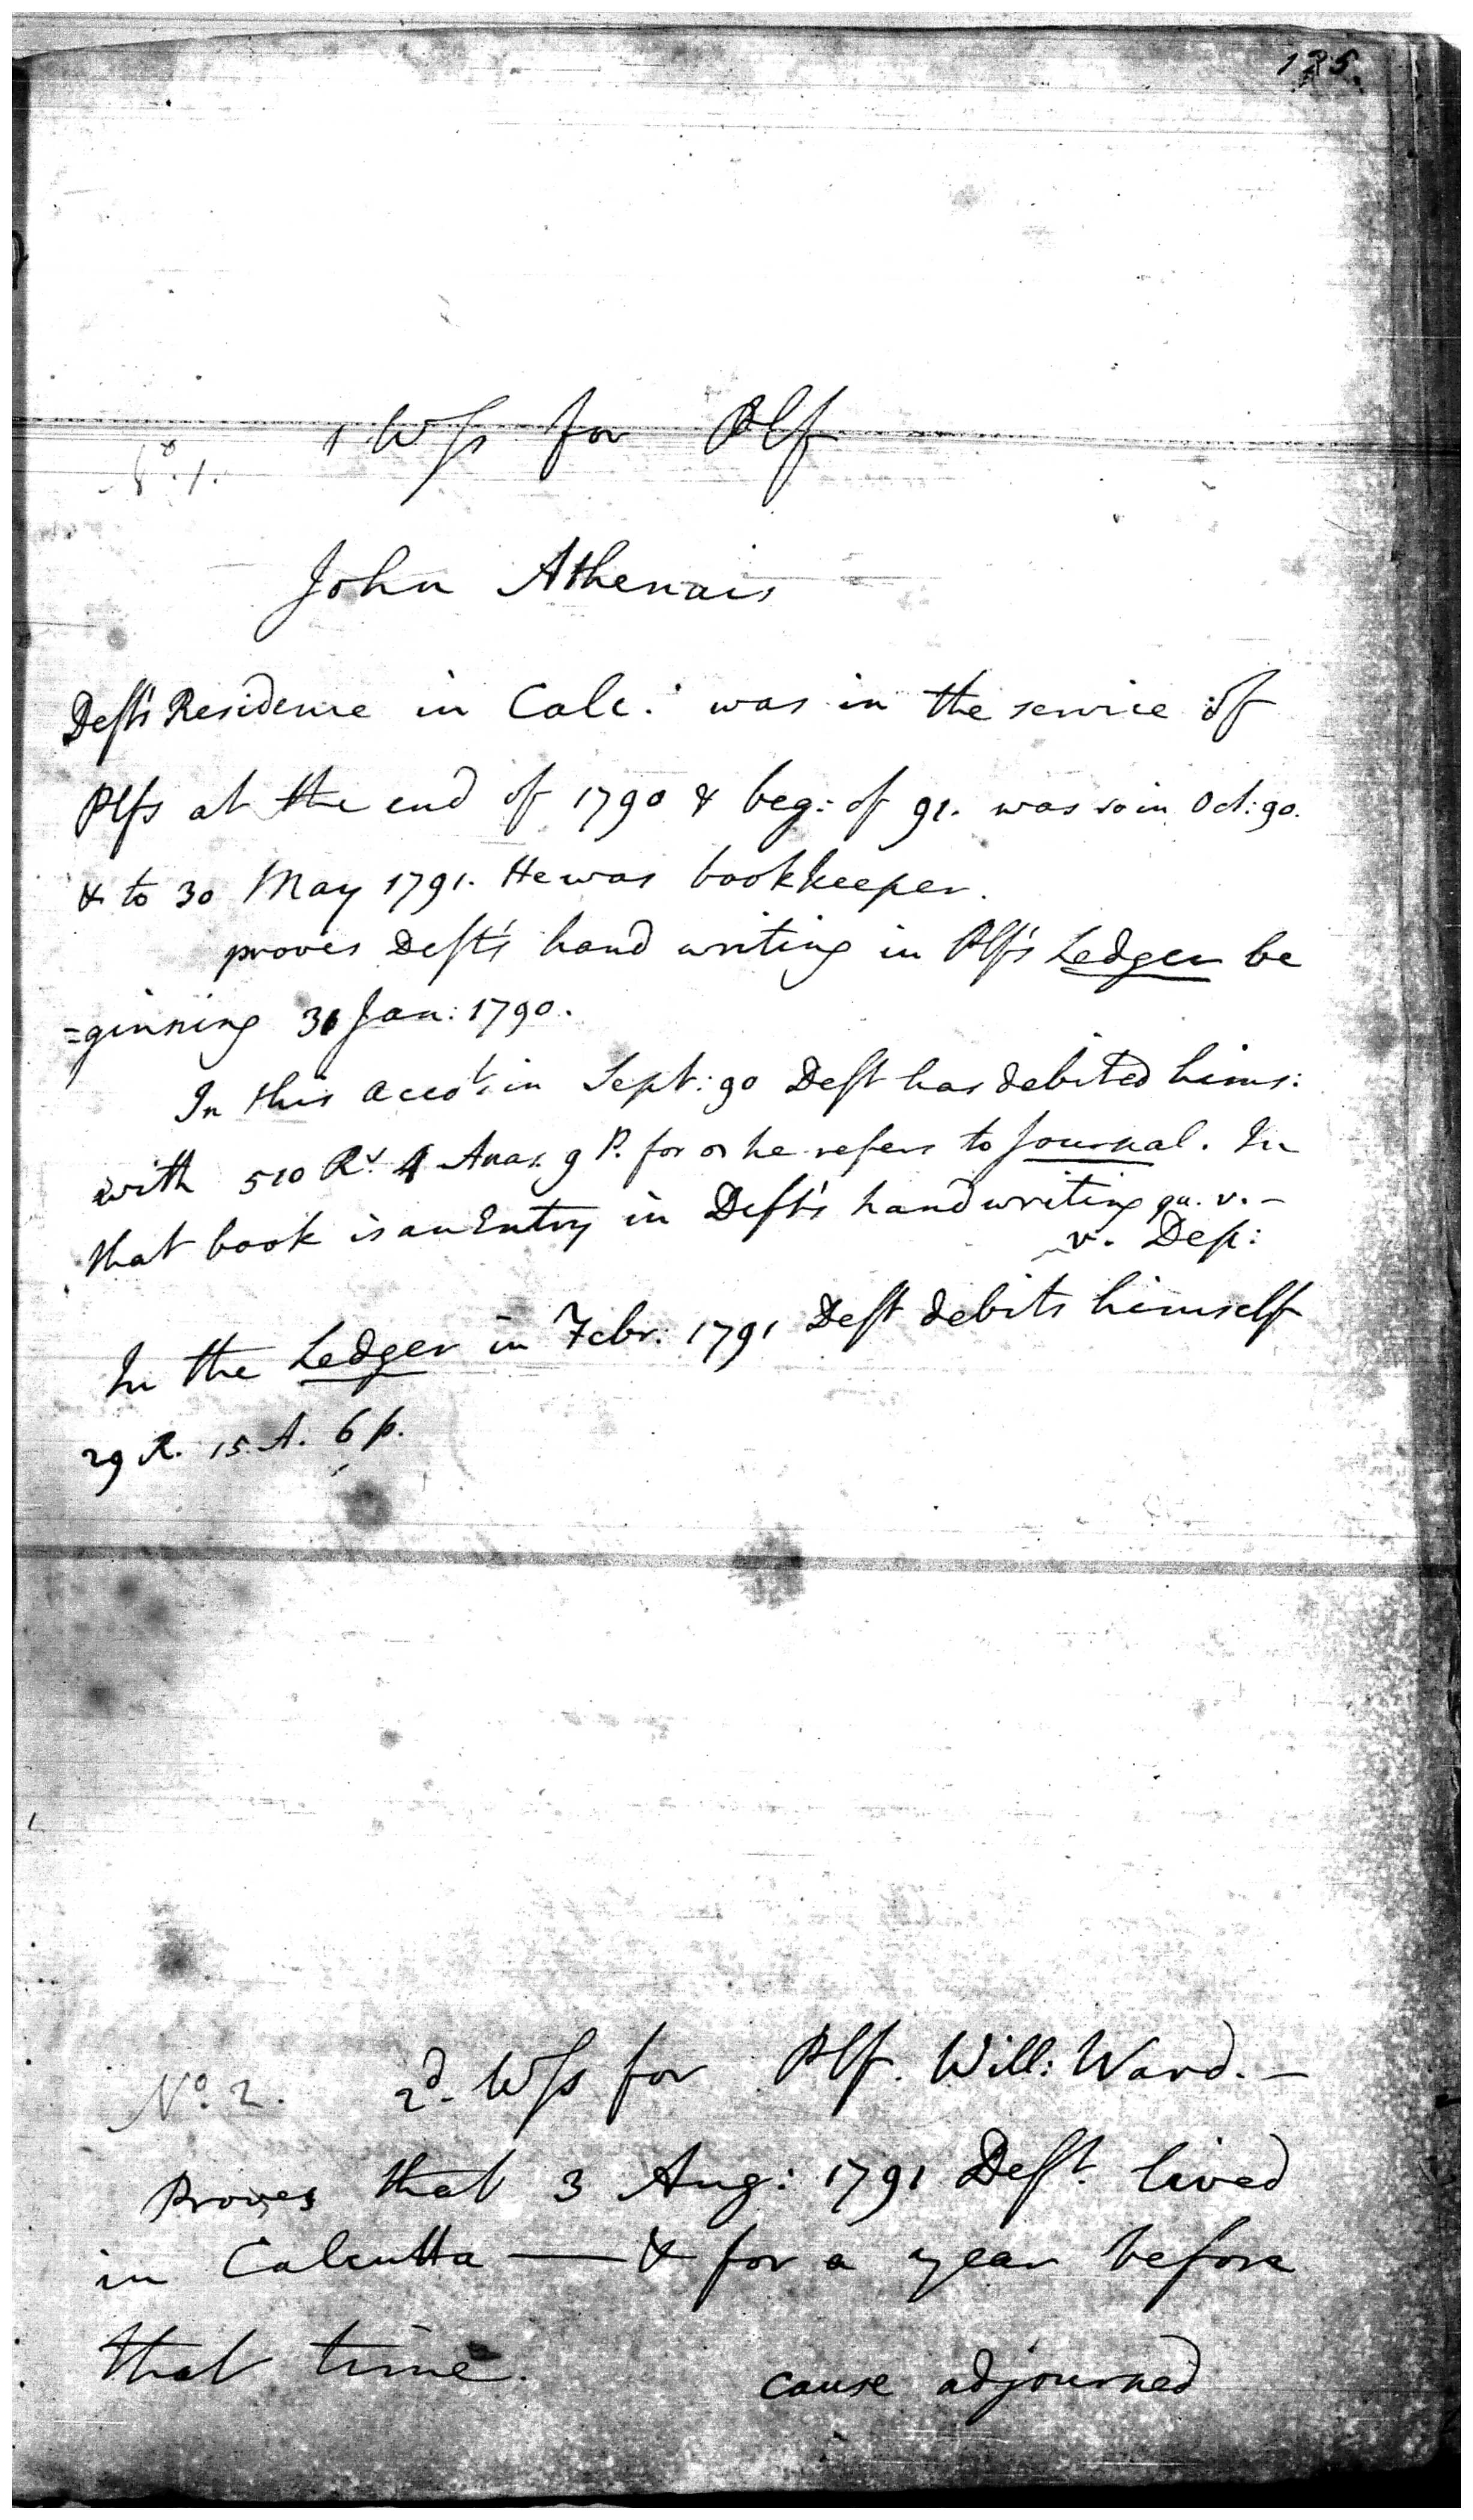 125.
1 Wss for Plf
No. 1.
John Athenais
Deft's Residence in Calc: was in the service of
Plfs at the end of 1790 & beg: of 91. was so in Oct: 90.
& to 30 May 1791. He was bookkeeper.
proves Deft's hand writing in Plf's Ledger be
=ginning 31 Jan: 1790.
In this accot. in Sept: 90 Deft has debited hims:
with 510 Rs. 4 Anas. 9 P. for he refers to Journal. In
that book is an Entry in Deft's handwriting qu. v. -
v. Dep:
In the Ledger in Febr: 1791 Deft debits himself
29 R. 15. A. 6 p.
No. 2. 2d. Wss for Plf. Will: Ward. -
Proves that 3 Aug: 1791 Deft. lived
in Calcutta — & for a year before
that time.
cause adjourned